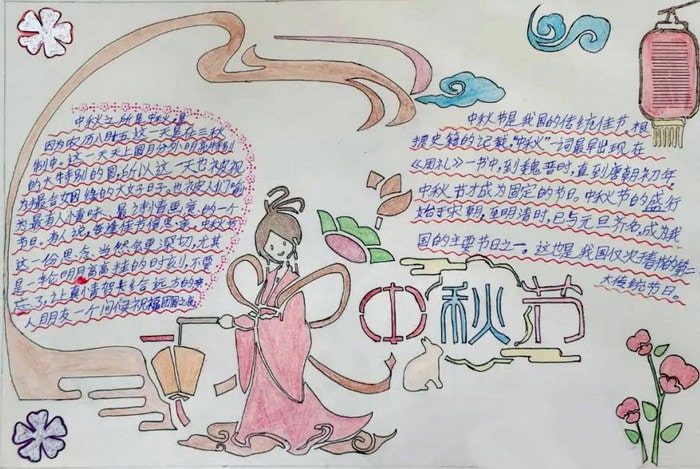 中秋之所是中秋是
因为农历八月十五这一天是在三秋
制中。这一天天上圆月分外明亮特别
的大特别的圆,所以这一天也被视
为撮合姻缘的大好日子,也被人们喻
为最有人情味、最诗情画意的一个
节日。有人说,每逢佳节倍思亲。中秋节
这一份思念当然会更深切,尤其
是一轮明月高高挂的时刻,不要
忘了,让真情贺卡给远方的亲
人朋友一个问候祝福团圆之夜
中秋节是我国的传统佳节。根
据史籍的记载"中秋"一词最早出现在
《周礼》一书中,到魏晋时,直到唐朝初年,
中秋节才成为固定的节日。中秋节的盛行
始于宋朝,至明清时,已与元旦齐名,成为我
国的主要节日之一。这也是我国仅次春节的第
大传统节日。
中秋节